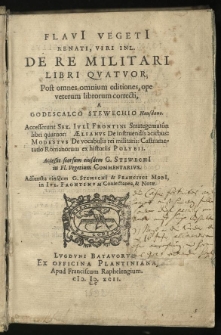 FLAVI VEGETI
RENATI, VIRI INL.
DE RE MILITARI
LIBRI QVATVOR,
Post omnes omnium editiones, ope
veterum librorum correcti,
A
GODESCALCO STEWECHIO Heusdano.
Accesserunt SEX. IVLI FRONTINI Strategematôn
libri quatuor: ÆLIANVS De instruendis aciebus:
MODESTVS De vocabulis rei militaris: Castrametatio
Romanorum ex historiis POLYBII.
Accessit seorsum eiusdem G. STEWECHI
in Fl. Vegetium COMMENTARIVS.
Adiuncta eiusdem G. STEWECHI & FRANCISCI MODI,
in IVL. FRONTINVM Coniectanea, & Notæ.
LVGDVNI BATAVORVM
EX OFFICINA PLANTINIANA,
Apud Franciscum Raphelengium.